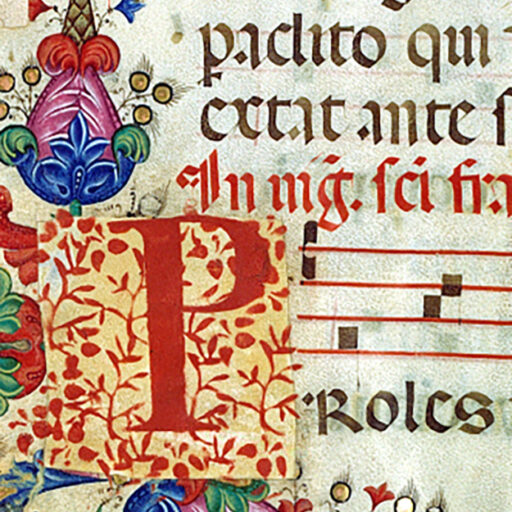 paclito qui
extat ante s
In vig̃. sci fra
P
Roles